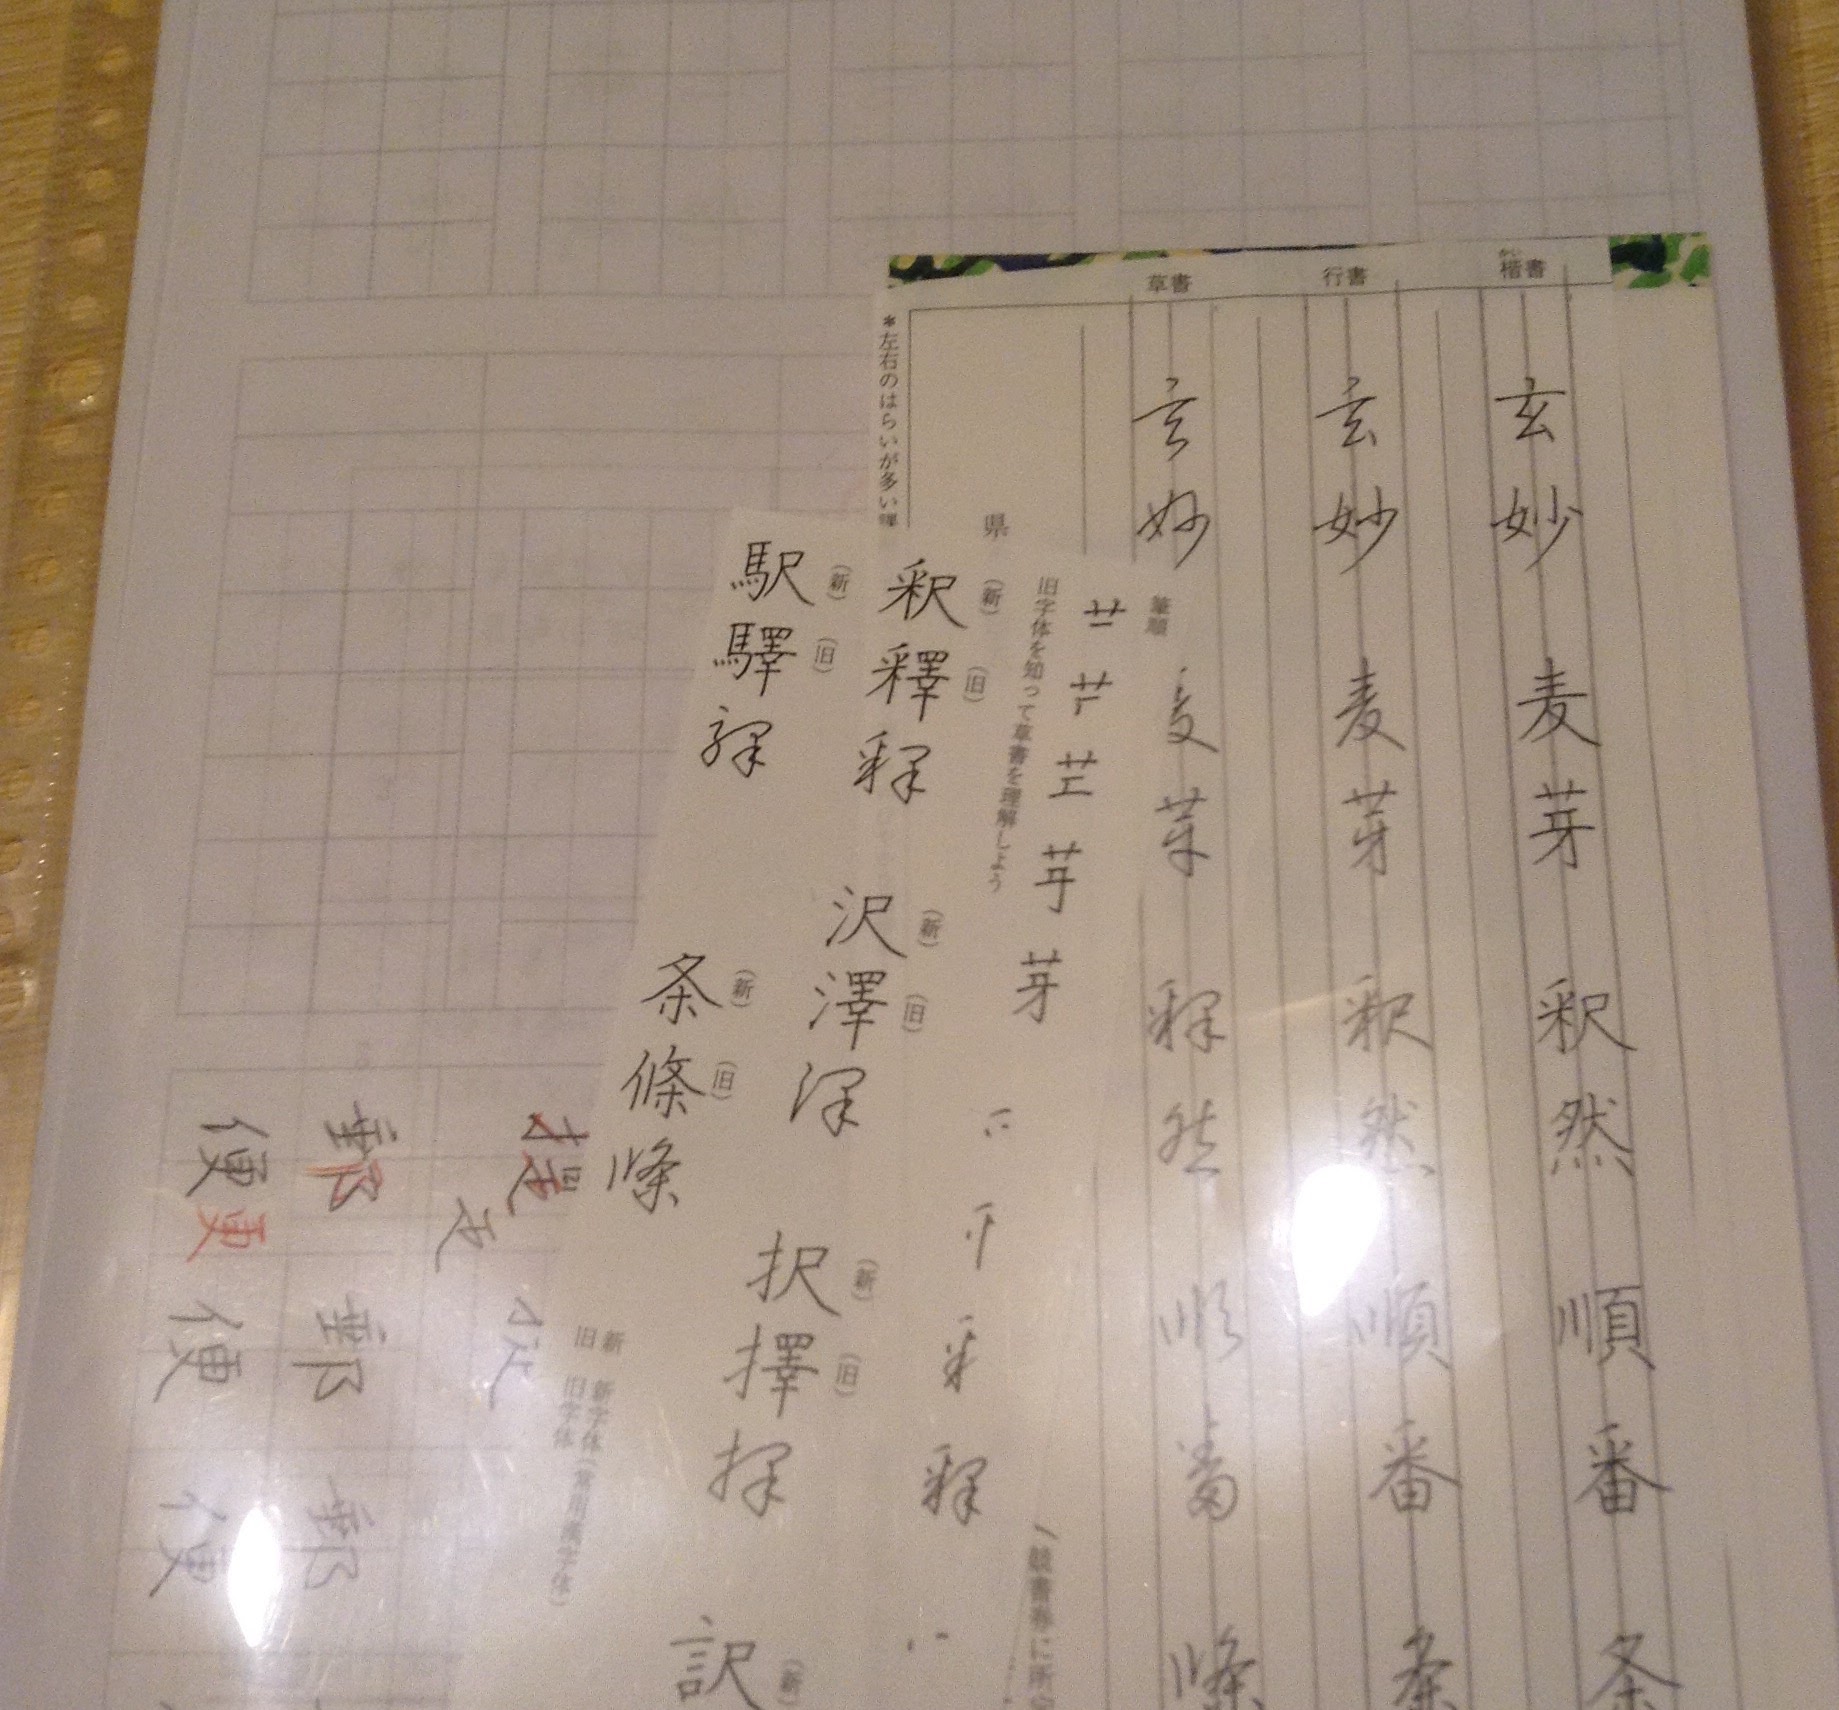 楷書
玄妙麦芽釈然順番条
行書
玄妙麦芽釈然順番条
草書
玄妙麦芽釋然順番條
筆順
芽
県
旧字体を知って草書を理解しよう
釈(新)
釋(旧)
釋
沢(新)
澤(旧)
澤
択(新)
擇(旧)
擇
訳(新)
駅(新)
驛(旧)
驛
条(新)
條(旧)
條
新 新字体(常用漢字体)
旧 旧字体
*左右のはらいが多い
郵
郵
郵
便
更
便
便